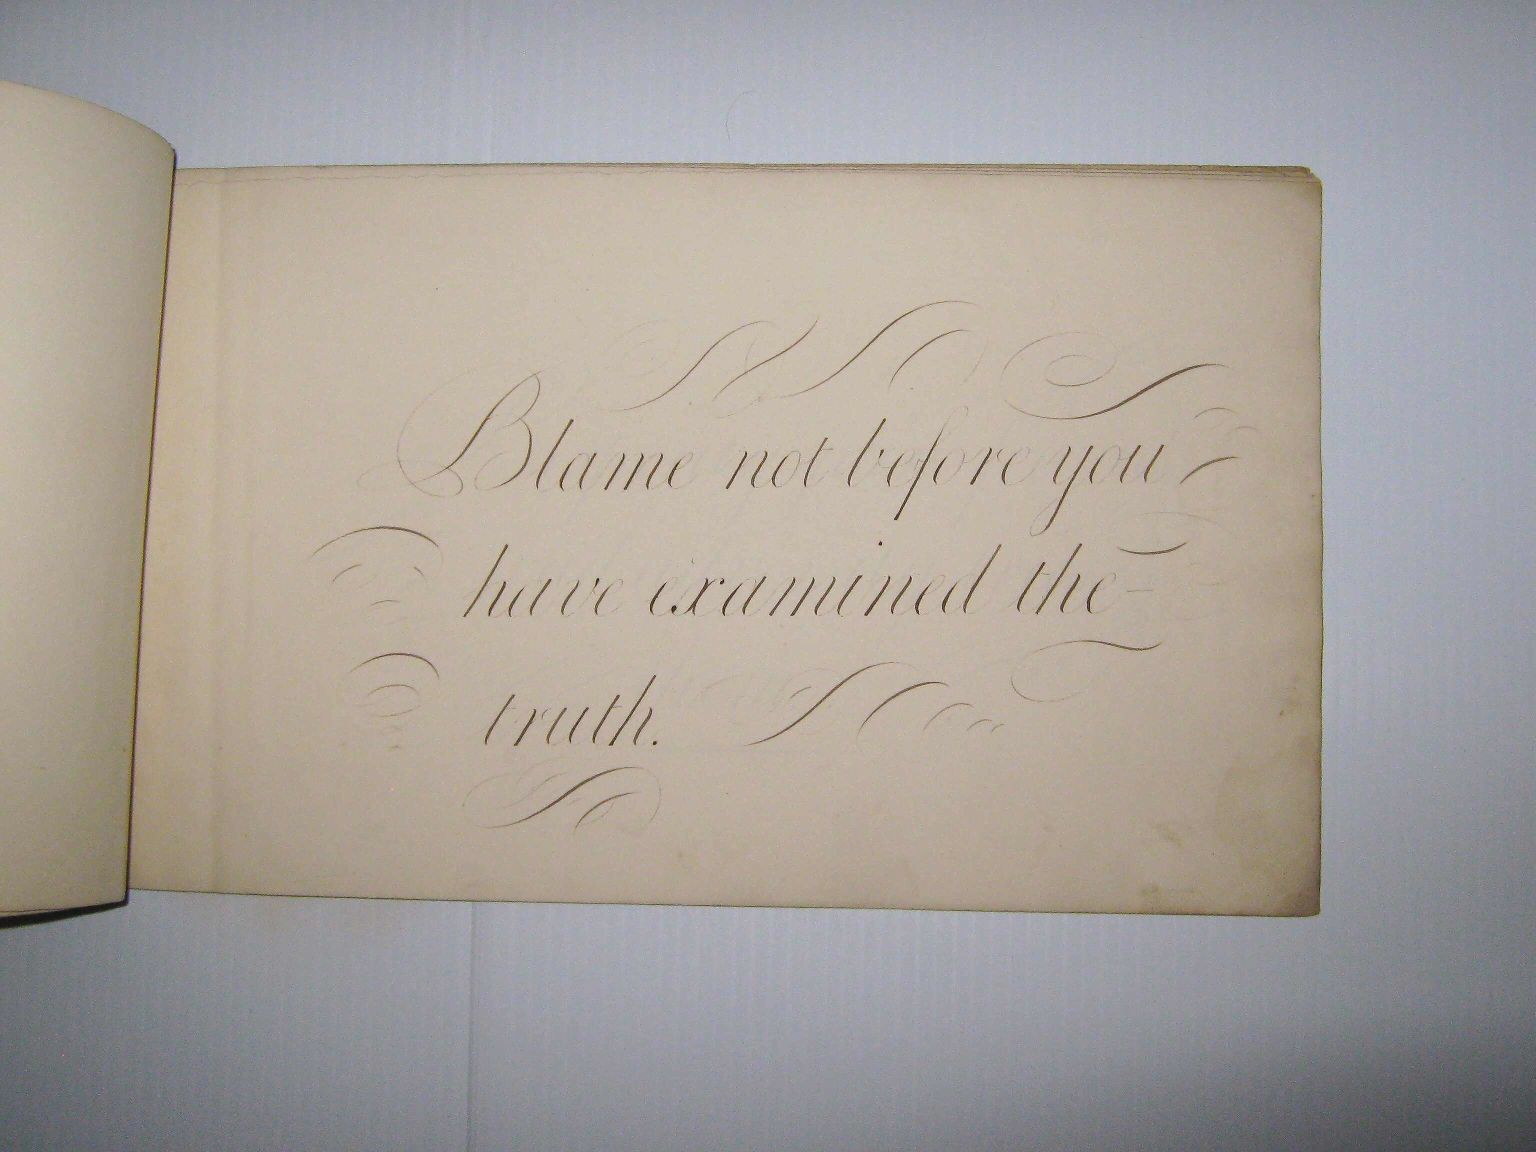 Blame not before you
have examined the
truth.